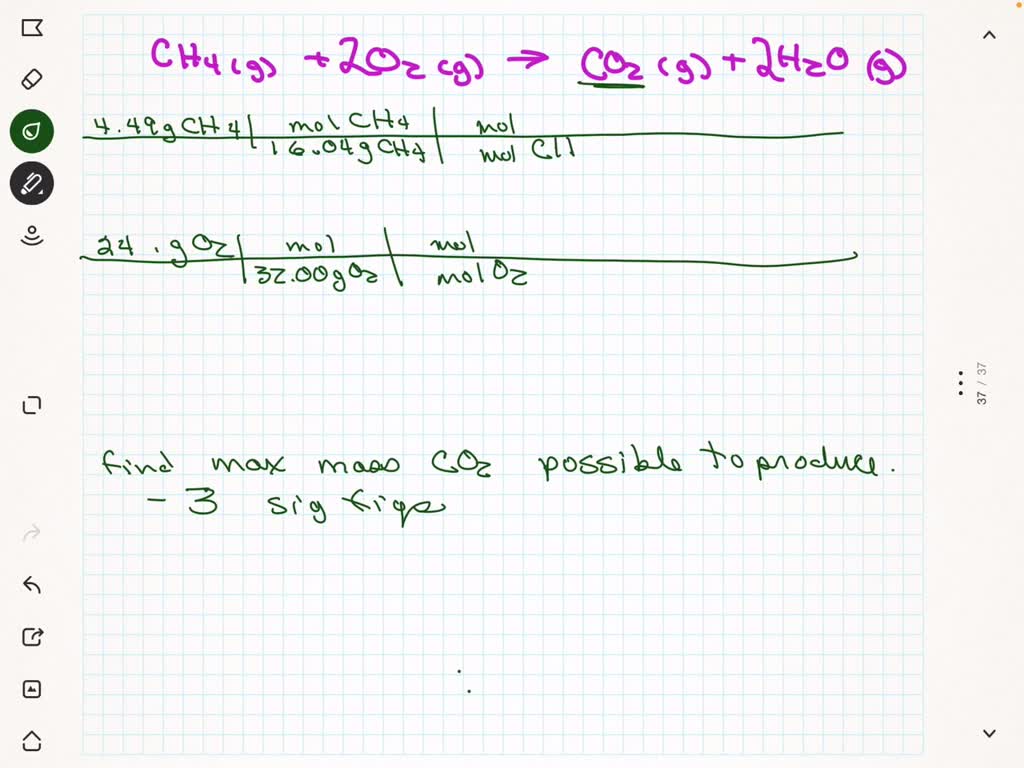 CH4(g) + 2O2 (g) → CO2 (g) + 2H2O (g)
4.49g CH4 | mol CH4 | mol
16.04g CH4 | mol CH
24 . g O2 | mol | mol
32.00g O2 | mol O2
37 / 37
find max mass CO2 possible to produce.
- 3 sig figs